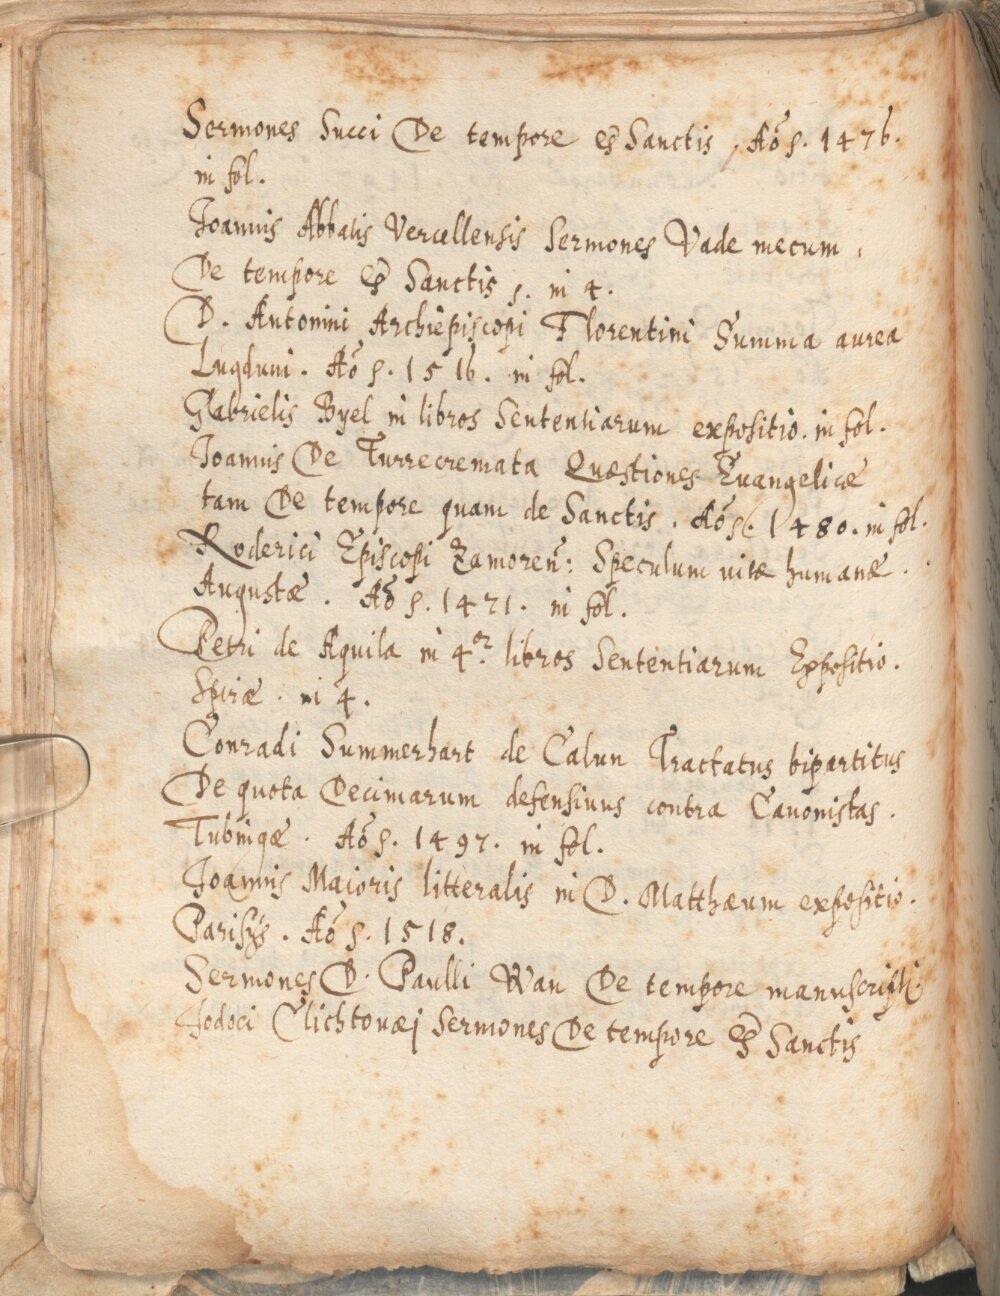 Sermones Succi De tempore et Sanctis, Aõ s. 1476.
in fol.
Joannis Abbatis Vercellensis Sermones Vade mecum,
De tempore et Sanctis s. in 4.
D. Antonini Archiepiscopi Florentini Summa aurea
Lugduni. Aõ s. 1516. in fol.
Gabrielis Byel in libros Sententiarum expositio. in fol.
Joannis De Turrecremata Quæstiones Euangelicæ
tam De tempore quam de Sanctis. Aõ s. 1480. in fol.
Roderici Episcopi Zamoreñ: Speculum vitæ humanæ.
Augustæ. Aõ s. 1471. in fol.
Petri de Aquila in 4.or libros Sententiarum Expositio.
Spiræ. in 4.
Conradi Summerhart de Calun Tractatus bipartitus
De quota Decimarum defensiuus contra Canonistas.
Tubingæ. Aõ s. 1497. in fol.
Joannis Maioris litteralis in D. Matthæum expositio.
Parisijs. Aõ s. 1518.
Sermones D. Paulli Wan De tempore manuscripti.
Jodoci Clichtouæj Sermones De tempore et Sanctis